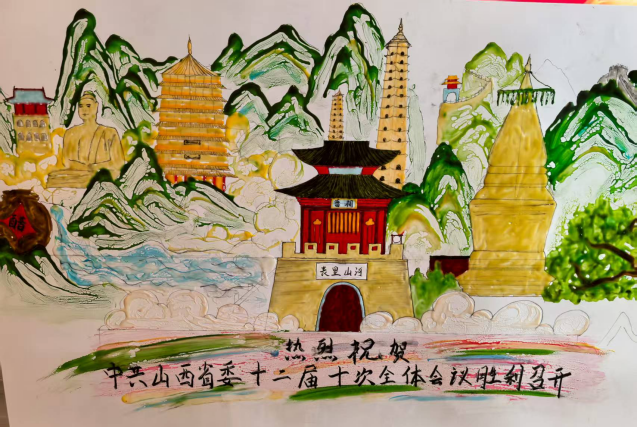 晋祠
醋
表里山河
热烈祝贺
中共山西省委十二届十次全体会议胜利召开